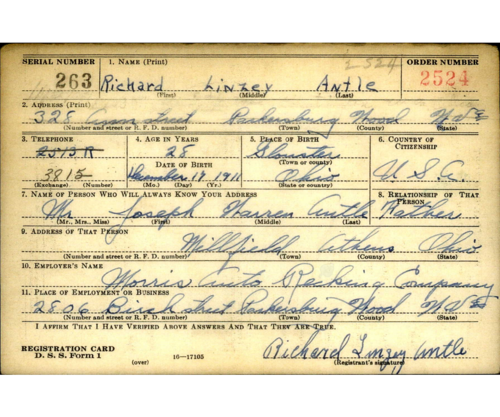 SERIAL NUMBER 1. NAME (Print) 2524 ORDER NUMBER
263 Richard Linzey Antle 2524
(First) (Middle) (Last)
2. ADDRESS (Print)
328 Ann street Parkersburg Wood W. Va
(Number and street or R. F. D. number) (Town) (County) (State)
3. TELEPHONE 4. AGE IN YEARS 5. PLACE OF BIRTH 6. COUNTRY OF CITIZENSHIP
2513 R 28 Glouster
DATE OF BIRTH (Town or county)
3815 December 19 1911 Ohio U S A.
(Exchange) (Number) (Mo.) (Day) (Yr.) (State or country)
7. NAME OF PERSON WHO WILL ALWAYS KNOW YOUR ADDRESS 8. RELATIONSHIP OF THAT PERSON
Mr. Joseph Warren Antle Father
(Mr., Mrs., Miss) (First) (Middle) (Last)
9. ADDRESS OF THAT PERSON
Millfield Athens Ohio
(Number and street or R. F. D. number) (Town) (County) (State)
10. EMPLOYER'S NAME
Morris Auto Company
11. PLACE OF EMPLOYMENT OR BUSINESS
2806 Birch street Parkersburg Wood W. Va
(Number and street or R. F. D. number) (Town) (County) (State)
I AFFIRM THAT I HAVE VERIFIED ABOVE ANSWERS AND THAT THEY ARE TRUE.
REGISTRATION CARD
D. S. S. Form 1 (over) 16—17105 Richard Linzey Antle
(Registrant's signature)